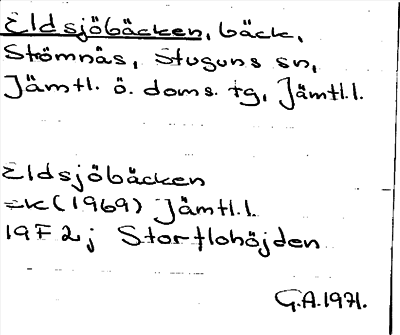 Eldsjöbäcken, bäck,
Strömnäs, Stuguns sn,
Jämtl. ö. doms. tg, Jämtl.l.
Eldsjöbäcken
EK (1969) Jämtl.l.
19F 2j Storflohöjden
G.A.1971.